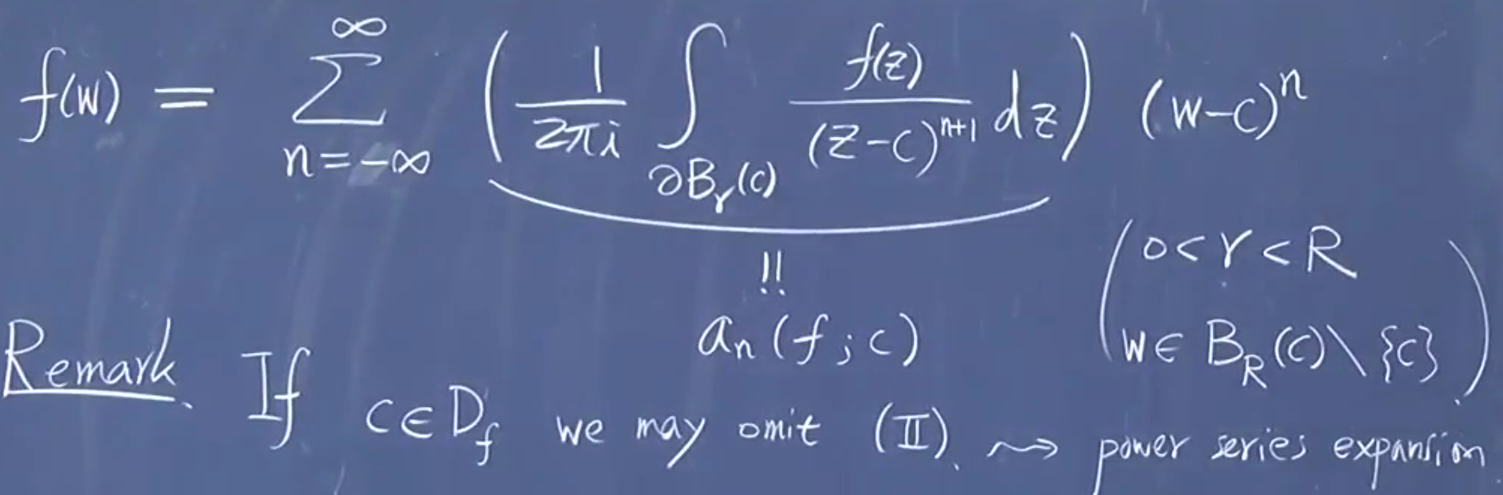 f(w) = \sum_{n=-\infty}^{\infty} \left( \frac{1}{2\pi i} \int_{\partial B_r(c)} \frac{f(z)}{(z-c)^{n+1}} dz \right) (w-c)^n
!!
a_n(f;c)
( 0<r<R
w ∈ B_R(c) \ {c} )
Remark. If c∈D_f we may omit (II). ⇝ power series expansion